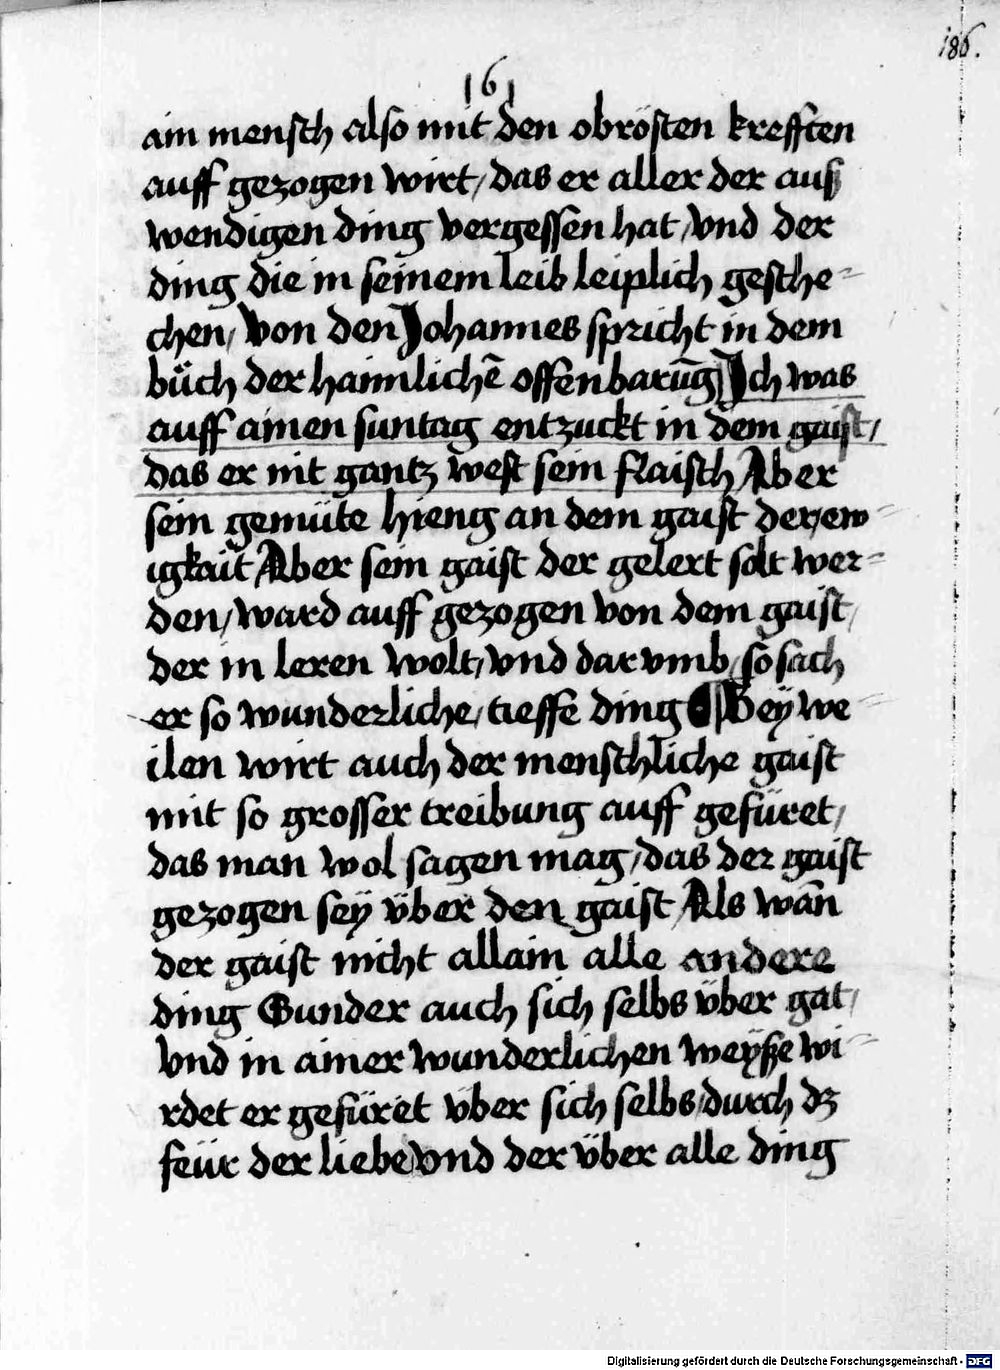 186.
161
ain mensch also mit den obrösten krefften
auff gezogen wirt/ das er aller der auß
wendigen ding vergessen hat/ vnd der
ding die in seinem leib leiplich gesche-
chen/ Von den Johannes spricht in dem
büch der haimlichē offenbarūg Ich was
auff ainen suntag entzuckt in dem gaist/
das er nit gantz west sein flaisch/ Aber
sein gemüte hieng an dem gaist der ew-
igkait Aber sein gaist der gelert solt wer-
den/ ward auff gezogen von dem gaist/
der in leren wolt/ vnd dar vmb/ so sach
er so wunderliche/ tieffe ding ¶ Bey we-
ilen wirt auch der menschliche gaist
mit so grosser treibung auff gefüret/
das man wol sagen mag/ das der gaist
gezogen sey über den gaist Als wān
der gaist nicht allain alle andere
ding Sunder auch sich selbs über gat/
Vnd in ainer wunderlichen weyße wi-
rdet er gefüret über sich selbs/ durch dz
feür der liebe Vnd der über alle ding
Digitalisierung gefördert durch die Deutsche Forschungsgemeinschaft - DFG